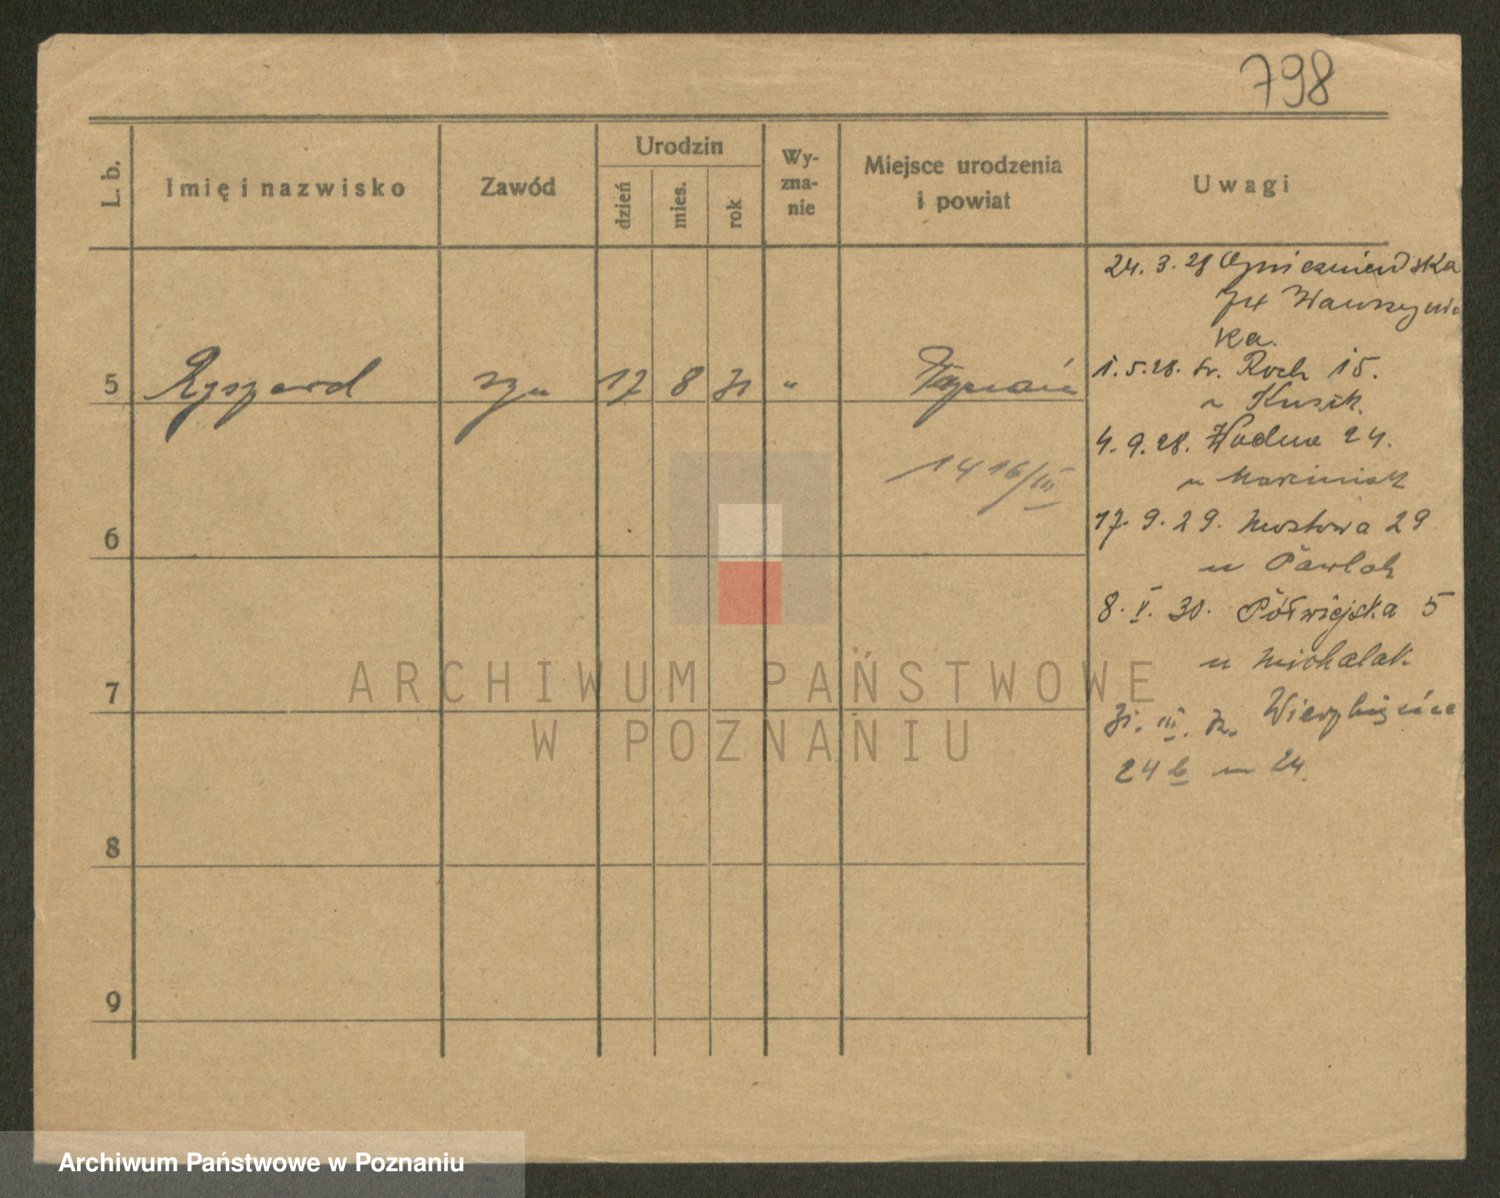 798
L. b.
Imię i nazwisko
Zawód
Urodzin
dzień
mies.
rok
Wy-
zna-
nie
Miejsce urodzenia
i powiat
Uwagi
5 Ryszard syn 17 8 31 " Poznań
1416/III
6
7
8
9
24. 3. 28
1. 5. 28. św. Roch 15.
u
4. 9. 28. Wodna 24.
u Marciniak
17. 9. 29. Mostowa 29
u Pawlak
8. V. 30. Półwiejska 5
u Michalak
31. III. Wierzbięcice
24 b m 24.
ARCHIWUM PAŃSTWOWE
W POZNANIU
Archiwum Państwowe w Poznaniu